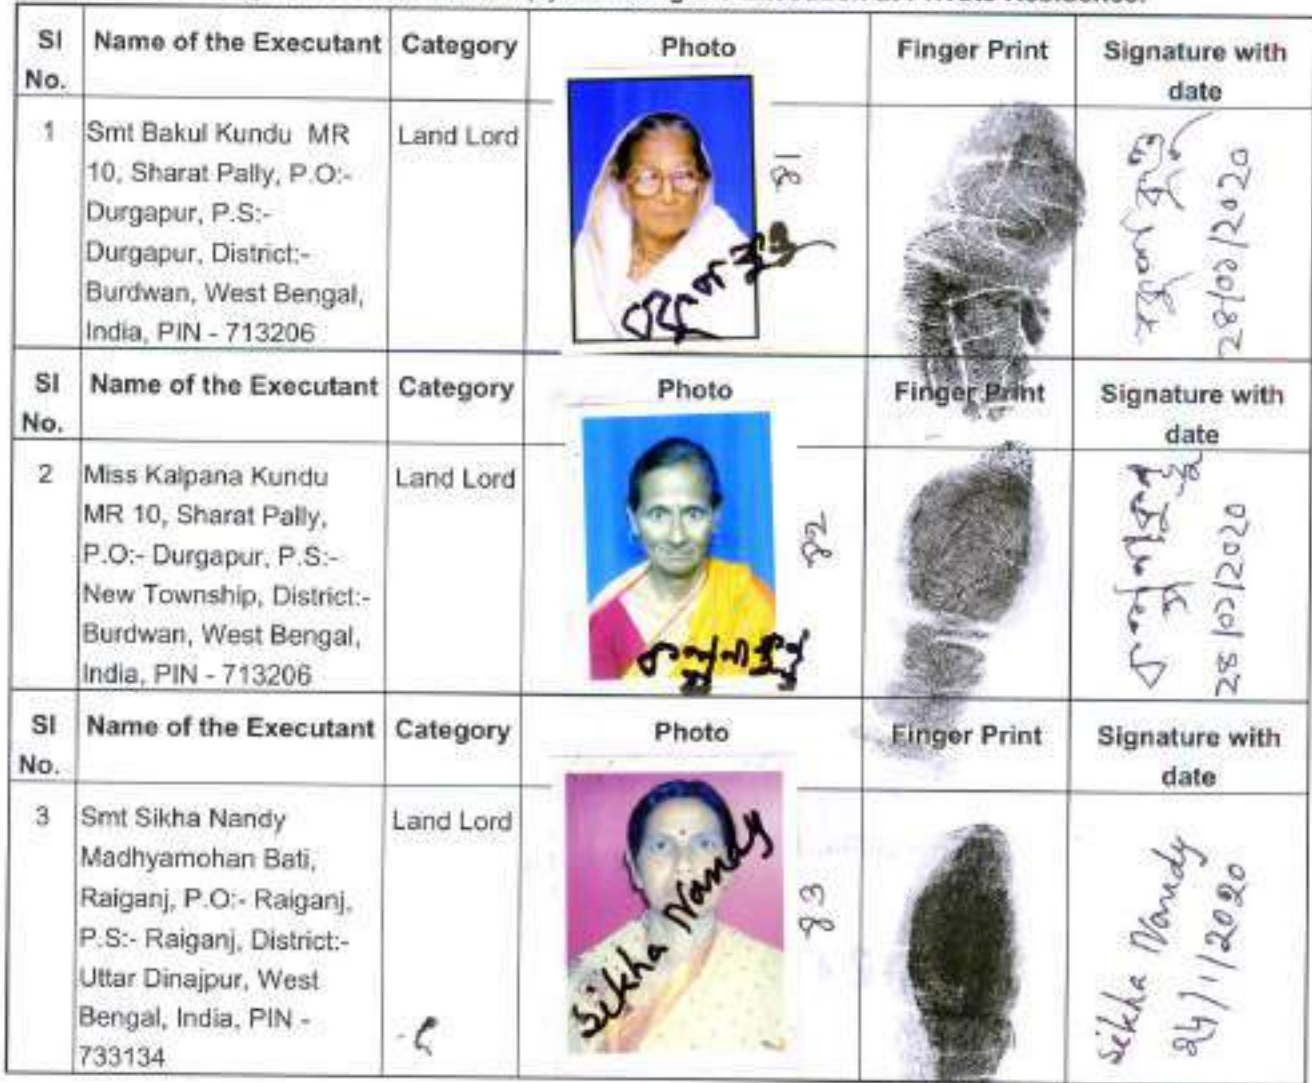 SI No. Name of the Executant Category Photo Finger Print Signature with date
1 Smt Bakul Kundu MR Land Lord
10, Sharat Pally, P.O:-
Durgapur, P.S:-
Durgapur, District:-
Burdwan, West Bengal,
India, PIN - 713206
বকুল কুন্ডু
বকুল কুন্ডু
SI No. Name of the Executant Category Photo Finger Print Signature with date
2 Miss Kalpana Kundu Land Lord
MR 10, Sharat Pally,
P.O:- Durgapur, P.S:-
New Township, District:-
Burdwan, West Bengal,
India, PIN - 713206
SI No. Name of the Executant Category Photo Finger Print Signature with date
3 Smt Sikha Nandy Land Lord
Madhyamohan Bati,
Raiganj, P.O:- Raiganj,
P.S:- Raiganj, District:-
Uttar Dinajpur, West
Bengal, India, PIN -
733134
Sikha Nandy
Sikha Nandy
24/1/2020